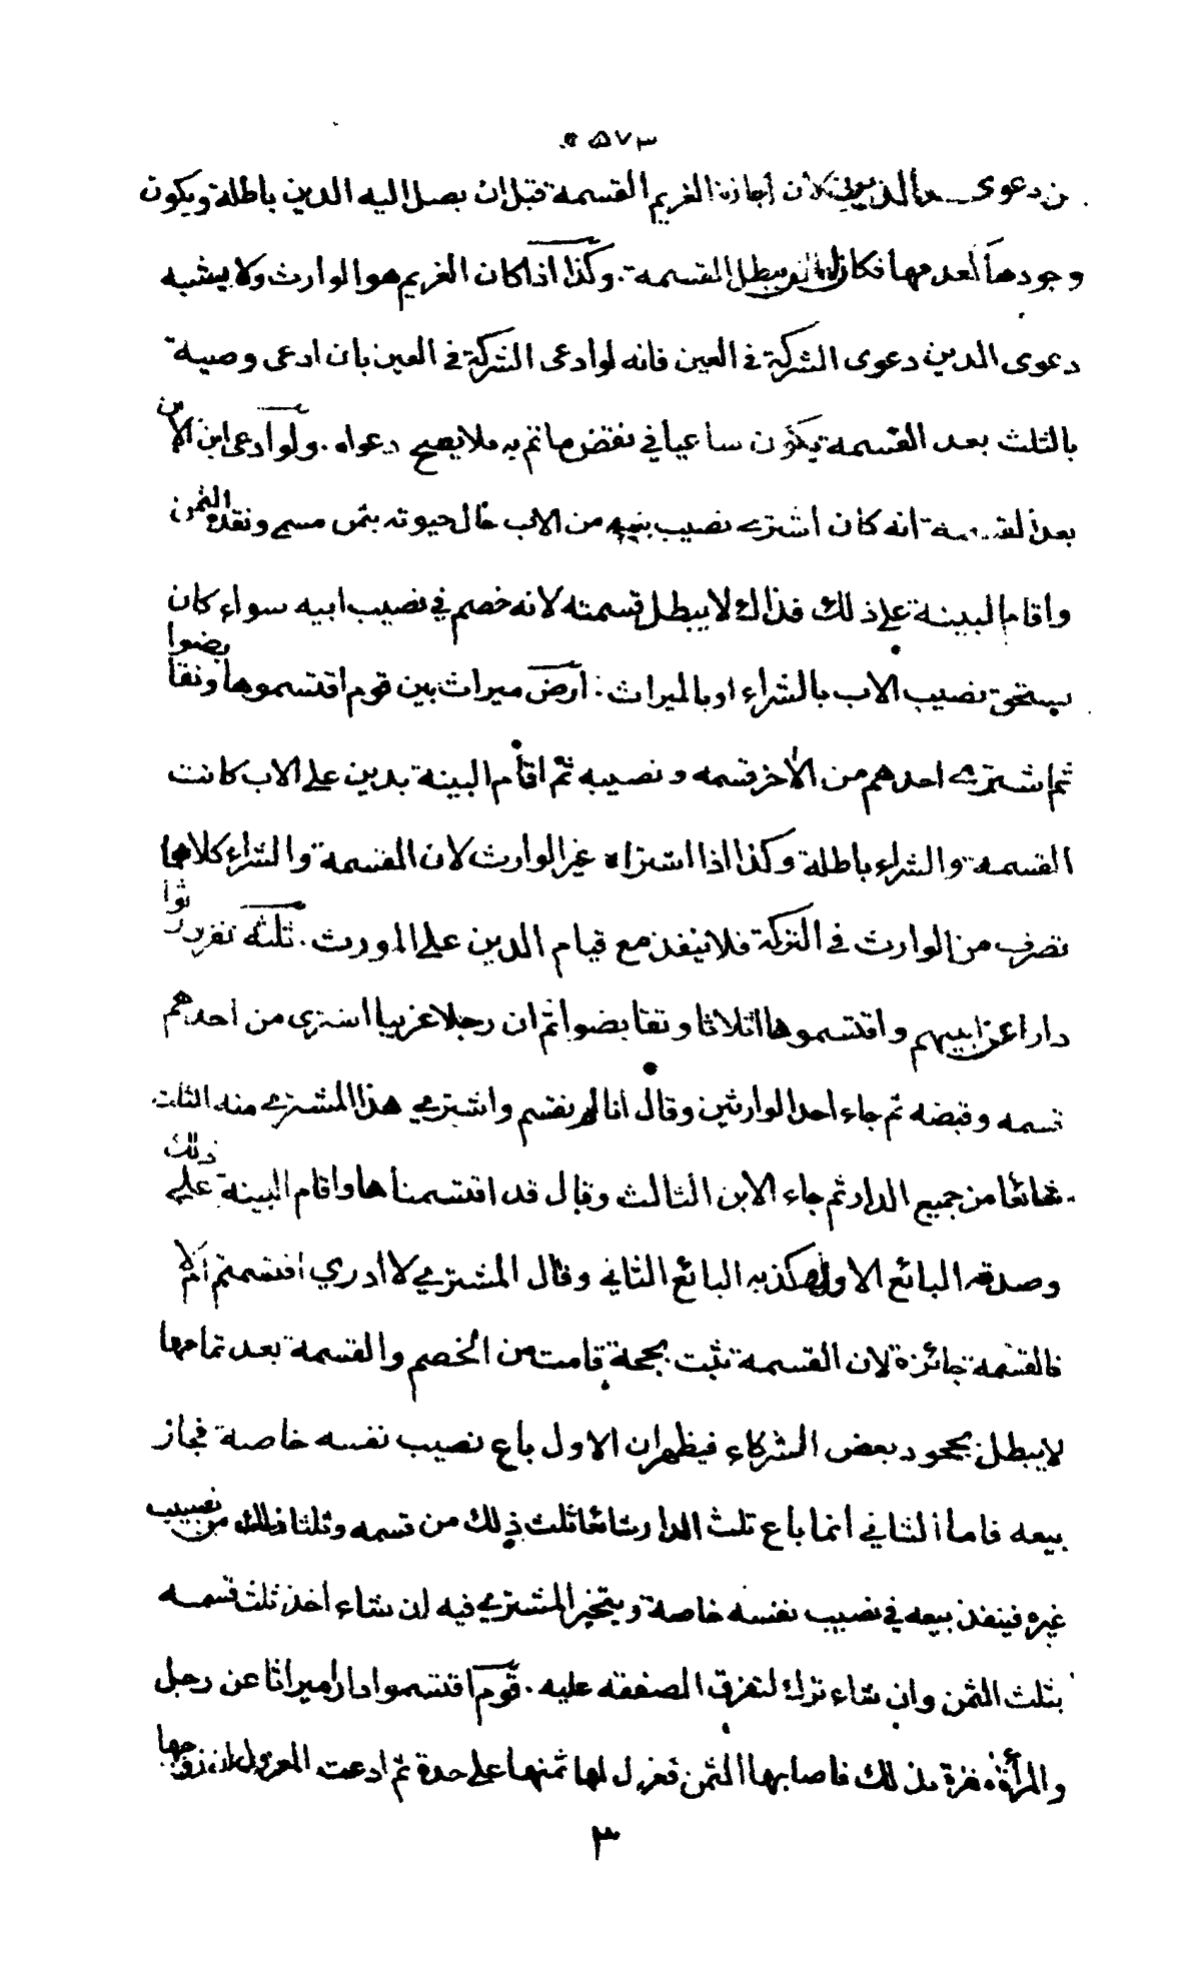 ٥٧٣
من دعوى الدين لأن اجازة الغريم القسمة قبل ان يصل اليه الدين باطلة ويكون
وجودها لعدمها فكان له ان يبطل القسمة . وكذا اذا كان الغريم هو الوارث ولا يشبه
دعوى الدين دعوى الشركة في العين فانه لو ادعى الشركة في العين بان ادعى وصية
بالثلث بعد القسمة يكون ساعيا في نقض ما تم به فلا يصح دعواه . ولو ادعى ابن الابن
بعد القسمة انه كان اشترى نصيب بنيه من الاب حال حيوته بثمن مسمى ونقده الثمن
واقام البينة على ذلك فذاك لا يبطل قسمته لانه خصم في نصيب ابيه سواء كان
يستحق نصيب الاب بالشراء او بالميراث . ارض ميراث بين قوم اقتسموها وتقابضوا
ثم اشترى احدهم من الآخر قسمه ونصيبه ثم اقام البينة بدين على الاب كانت
القسمة والشراء باطلة وكذا اذا اشتراه غير الوارث لان القسمة والشراء كلاهما
تصرف من الوارث في التركة فلا ينفذ مع قيام الدين على المورث . ثلثة نفر ورثوا
دارا عن ابيهم واقتسموها اثلاثا وتقابضوا ثم ان رجلا غريبا اشترى من احدهم
قسمه وقبضه ثم جاء احد الوارثين وقال انا لم نقسم واشترى هذا المشترى منه الثلث
شائعا من جميع الدار ثم جاء الابن الثالث وقال قد اقتسمناها واقام البينة على ذلك
وصدقه البائع الاول وكذبه البائع الثاني وقال المشتري لا ادري اقتسمتم ام لا
فالقسمة جائزة لان القسمة تثبت بحجة قامت من الخصم والقسمة بعد تمامها
لا يبطل بجحود بعض الشركاء فيظهر ان الاول باع نصيب نفسه خاصة فجاز
بيعه فاما الثاني انما باع ثلث الدار شائعا ثلث ذلك من قسمه وثلثا ذلك من نصيب
غيره فينفذ بيعه في نصيب نفسه خاصة ويتخير المشترى فيه ان شاء اخذ ثلث قسمه
بثلث الثمن وان شاء ترك لتفرق الصفقة عليه . قوم اقتسموا دارا ميراثا عن رجل
والمرأة مقرة بذلك فاصابها الثمن فعزل لها ثمنها على حدة ثم ادعت المعزول ان زوجها
٣